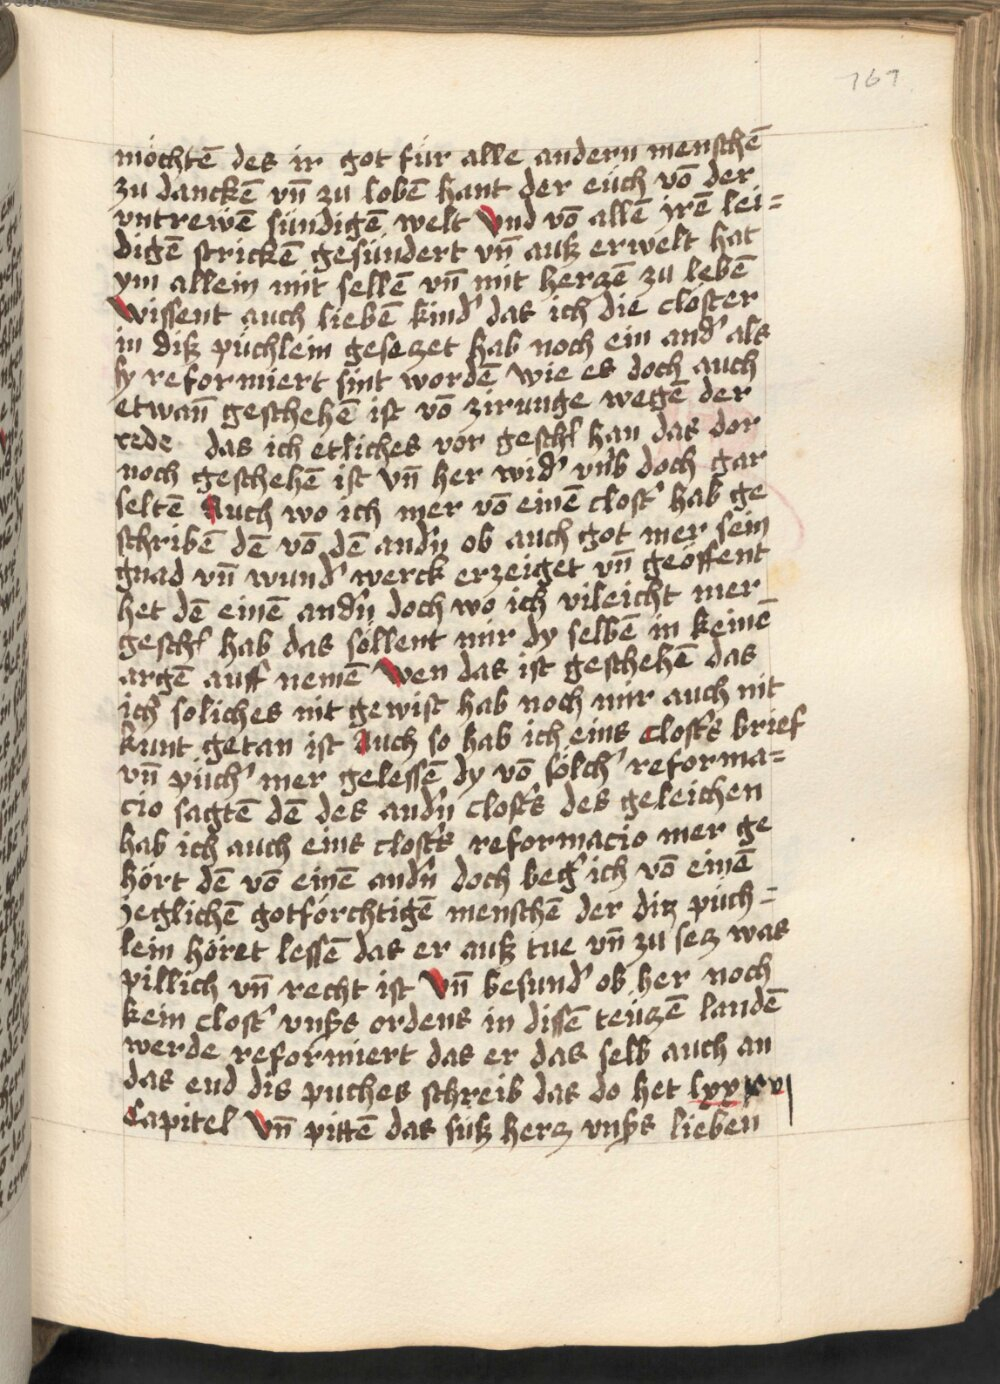 161
möchtē des ir got für alle andern menschē
zu danckē vn̄ zu lobē hant der eüch vō der
vntrewē sündigē welt Vnd vō allē yrē lei=
digē strickē gesündert vn̄ auß erwelt hat
ym allein mit sellē vn̄ mit herczē zu lebē
Wissent auch liebē kind' das ich die closter
in diß püchlein geseczet hab noch ein and' als
sy reformiert sint wordē wie es doch auch
etwan̄ geschehē ist vō zirunge wegē der
rede das ich etliches vor geschł han das dor
noch geschehē ist vn̄ her wid' vn̄b doch gar
seltē Auch wo ich mer vō einē clost' hab ge
schribē dē vō dē and'n̄ ob auch got mer sein
gnad vn̄ wund' werck erzeiget vn̄ geöffent
het dē einē and'n̄ doch wo ich vileicht mer
geschł hab das söllent mir dy selbē in keinē
argē auff nemē Wen das ist geschehē das
ich soliches nit gewist hab noch mir auch nit
kunt getan ist Auch so hab ich eins clost's brief
vn̄ püch' mer gelessē dy vō sölch' reforma=
cio sagtē dē des and'n̄ clost's des geleichen
hab ich auch eins clost's reformacio mer ge
hört dē vō einē and'n̄ doch beg' ich vō einē
jeglichē gotförchtigē menschē der diz püch=
lein höret lessē das er auß tue vn̄ zu secz was
pillich vn̄ recht ist Vn̄ besund' ob her noch
kein clost' vnßs ordens in dissē teüczē landē
werde reformiert das er das selb auch an
das end dis puches schreib das do het
Capitel Vn̄ pittē das süß hercz vnßs lieben